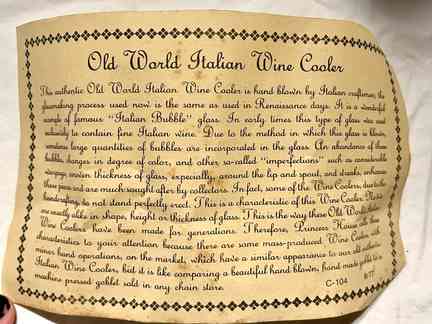 Old World Italian Wine Cooler
This authentic Old World Italian Wine Cooler is hand blown by Italian craftsmen; the
glassmaking process used now is the same as used in Renaissance days. It is a wonderful
example of famous "Italian Bubble" glass. In early times this type of glass was used
exclusively to contain fine Italian wine. Due to the method in which this glass is blown,
large quantities of bubbles are incorporated in the glass. An abundance of these
bubbles, changes in degree of color, and other so-called "imperfections" such as considerable
uneven thickness of glass, especially around the lip and spout, and streaks, enhance
these pieces and are much sought after by collectors. In fact, some of the Wine Coolers, due to the
handcrafting, do not stand perfectly erect. This is a characteristic of this Wine Cooler. No two
are exactly alike in shape, height or thickness of glass. This is the way these Old World Italian
Wine Coolers have been made for generations. Therefore, Princess House calls these
characteristics to your attention because there are some mass-produced Wine Coolers, with
minor hand operations, on the market, which have a similar appearance to our old authentic
Italian Wine Cooler, but it is like comparing a beautiful hand blown, hand made goblet to a
machine pressed goblet sold in any chain store.
C-104 8/77